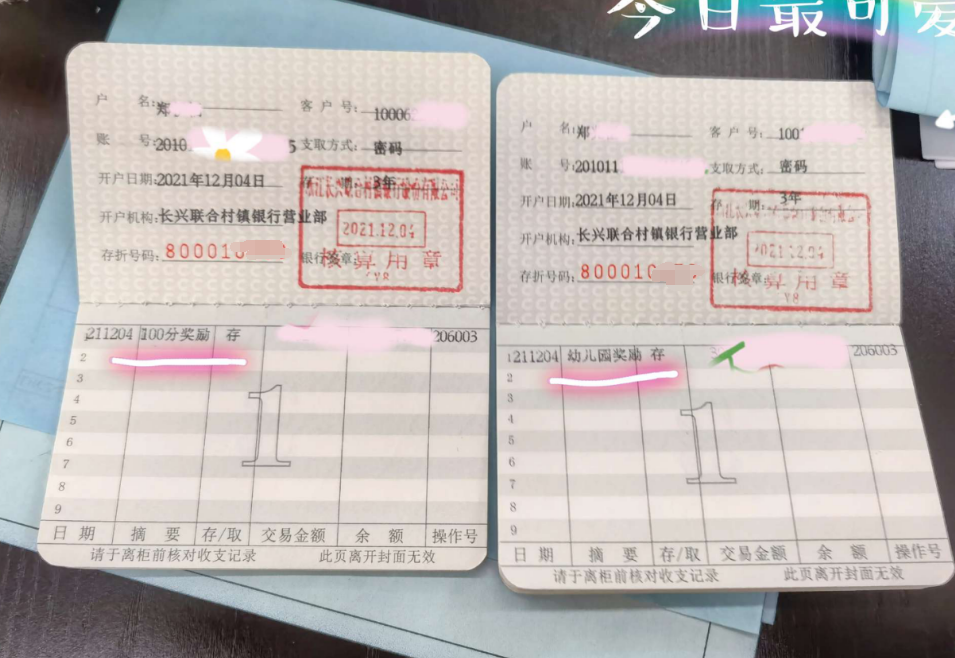 今日最可爱
户 名: 郑 客户号: 10006
账 号: 2010 5 支取方式: 密码
开户日期: 2021年12月04日 存 期: 3年
开户机构: 长兴联合村镇银行营业部
存折号码: 800010 银行签章
2021.12.04
核算用章
(Y8
1 211204 100分奖励 存 206003
2
3
4
5
6
7
8
9
1
日期 摘要 存/取 交易金额 余额 操作号
请于离柜前核对收支记录 此页离开封面无效
户 名: 郑 客户号: 100
账 号: 201011 支取方式: 密码
开户日期: 2021年12月04日 存 期: 3年
开户机构: 长兴联合村镇银行营业部
存折号码: 800010 银行签章
2021.12.04
核算用章
Y8
1 211204 幼儿园奖励 存 206003
2
3
4
5
6
7
8
9
1
日期 摘要 存/取 交易金额 余额 操作号
请于离柜前核对收支记录 此页离开封面无效